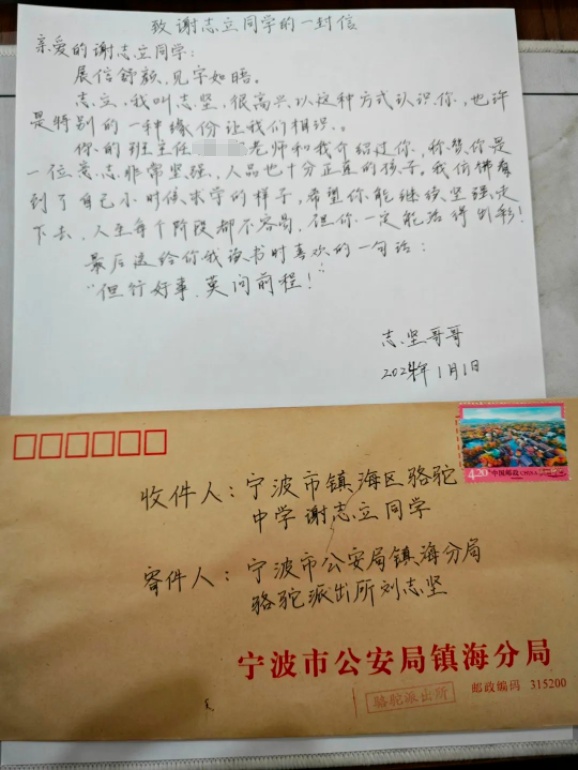 致谢志立同学的一封信
亲爱的谢志立同学:
展信舒颜,见字如晤。
志立,我叫志坚,很高兴以这种方式认识你,也许
是特别的一种缘份让我们相识。
你的班主任 老师和我介绍过你,称赞你是
一位意志非常坚强,人品也十分正直的孩子。我仿佛看
到了自己小时候求学的样子,希望你能继续坚强走
下去,人生每个阶段都不容易,但你一定能活得出彩!
最后送给你我读书时喜欢的一句话:
“但行好事,莫问前程!”
志坚哥哥
2024年1月1日
4.20 中国邮政 CHINA
收件人:宁波市镇海区骆驼
中学谢志立同学
寄件人:宁波市公安局镇海分局
骆驼派出所刘志坚
宁波市公安局镇海分局
骆驼派出所 邮政编码 315200